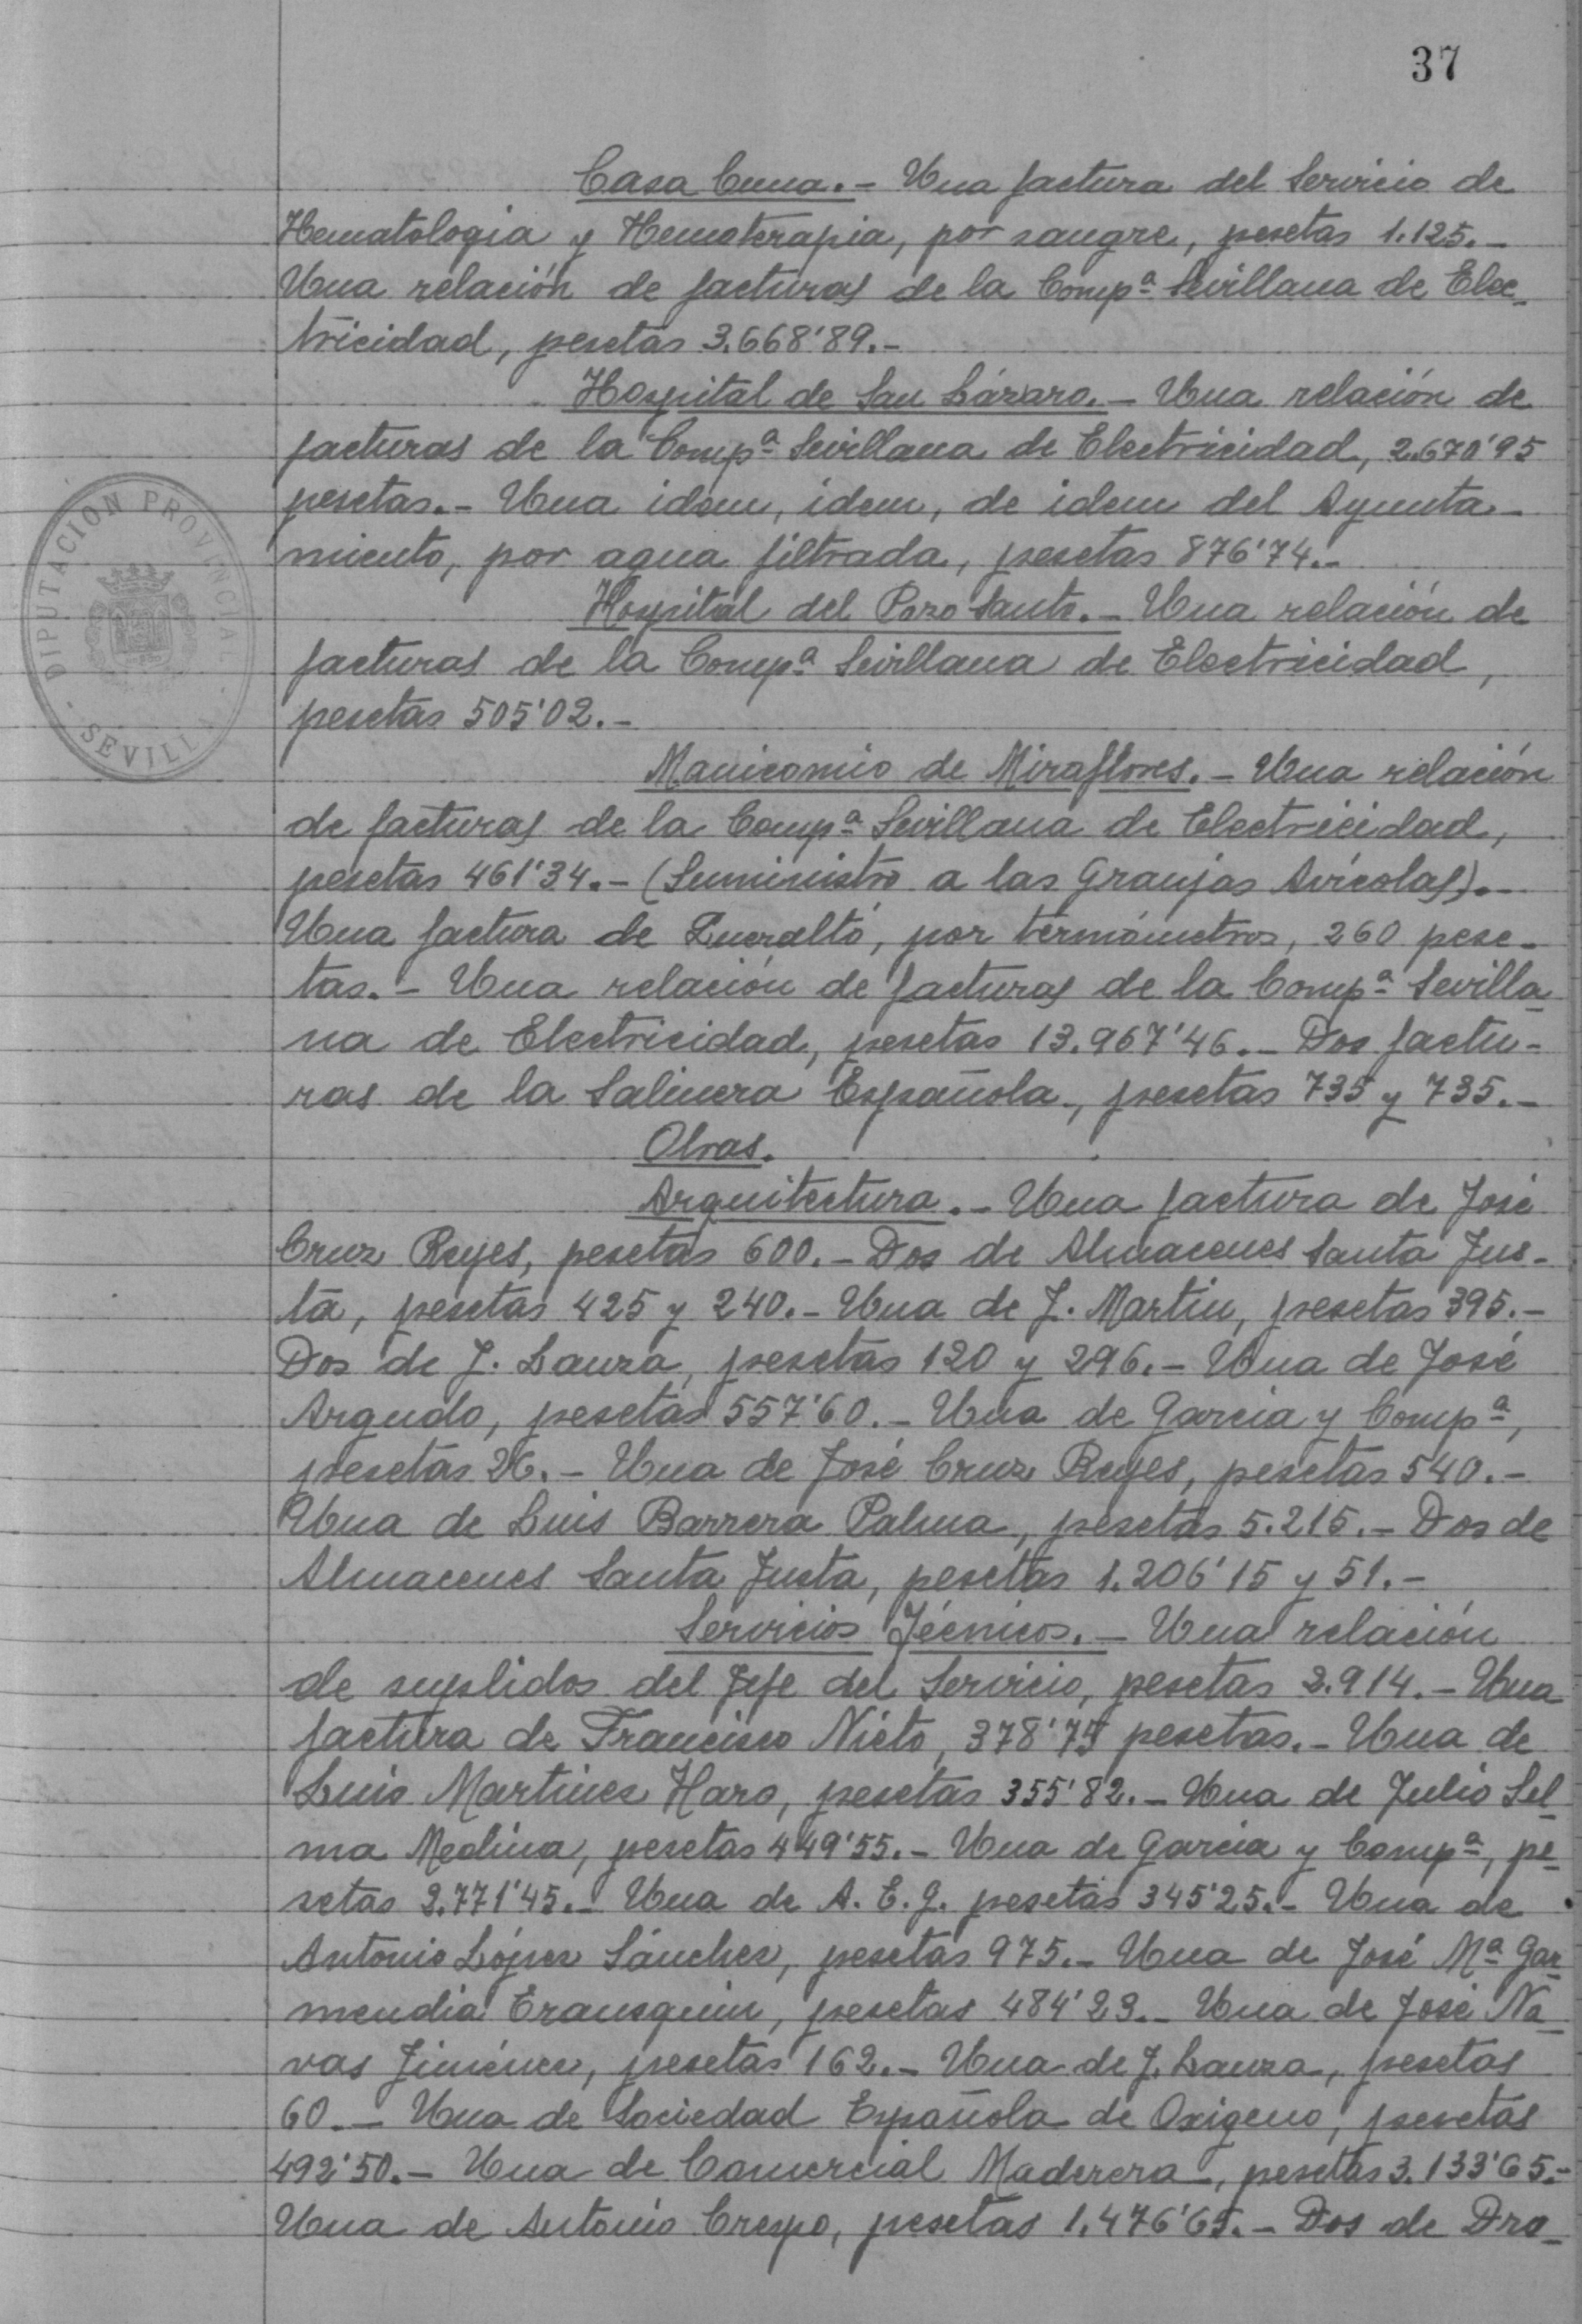 37
Casa Cuna.- Una factura del Servicio de
Hematologia y Hemoterapia, por sangre, pesetas 1.125.-
Una relación de facturas de la Compª Sevillana de Elec-
tricidad, pesetas 3.668'89.-
Hospital de San Lázaro.- Una relación de
facturas de la Compª Sevillana de Electricidad, 2.670'95
pesetas.- Una idem, idem, de idem del Ayunta-
miento, por agua filtrada, pesetas 876'74.-
Hospital del Pozo Santo.- Una relación de
facturas de la Compª Sevillana de Electricidad,
pesetas 505'02.-
Manicomio de Miraflores.- Una relación
de facturas de la Compª Sevillana de Electricidad,
pesetas 461'34.- (Suministro a las Granjas Avícolas).-
Una factura de Queraltó, por termómetros, 260 pese-
tas.- Una relación de facturas de la Compª Sevilla-
na de Electricidad, pesetas 13.967'46.- Dos factu-
ras de la Salinera Española, pesetas 735 y 735.-
Obras.
Arquitectura.- Una factura de José
Cruz Reyes, pesetas 600.- Dos de Almacenes Santa Jus-
ta, pesetas 425 y 240.- Una de J. Martin, pesetas 395.-
Dos de J. Lauza, pesetas 120 y 296.- Una de José
Argudo, pesetas 557'60.- Una de Garcia y Compª,
pesetas 26.- Una de José Cruz Reyes, pesetas 540.-
Una de Luis Barrera Palma, pesetas 5.215.- Dos de
Almacenes Santa Justa, pesetas 1.206'15 y 51.-
Servicios Técnicos.- Una relación
de suplidos del Jefe del Servicio, pesetas 2.914.- Una
factura de Francisco Nieto, 378'75 pesetas.- Una de
Luis Martinez Haro, pesetas 355'82.- Una de Julio Sel-
ma Medina, pesetas 449'55.- Una de Garcia y Compª, pe-
setas 2.771'45.- Una de A. E. G. pesetas 345'25.- Una de
Antonio López Sánchez, pesetas 975.- Una de José Mª Gar-
mendia Erausquin, pesetas 484'23.- Una de José Na-
vas Jiménez, pesetas 162.- Una de J. Lauza, pesetas
60.- Una de Sociedad Española de Oxigeno, pesetas
492'50.- Una de Comercial Maderera, pesetas 3.133'65.-
Una de Antonio Crespo, pesetas 1.476'65.- Dos de Dro-
DIPUTACION PROVINCIAL - SEVILLA -